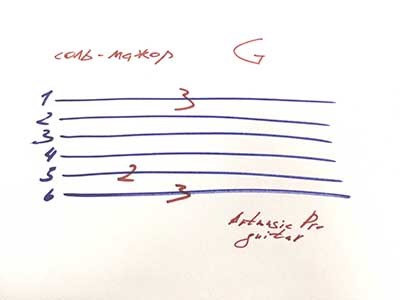 соль-мажор G
1 3
2
3
4
5 2
6 3
Artmusic Pro
guitar